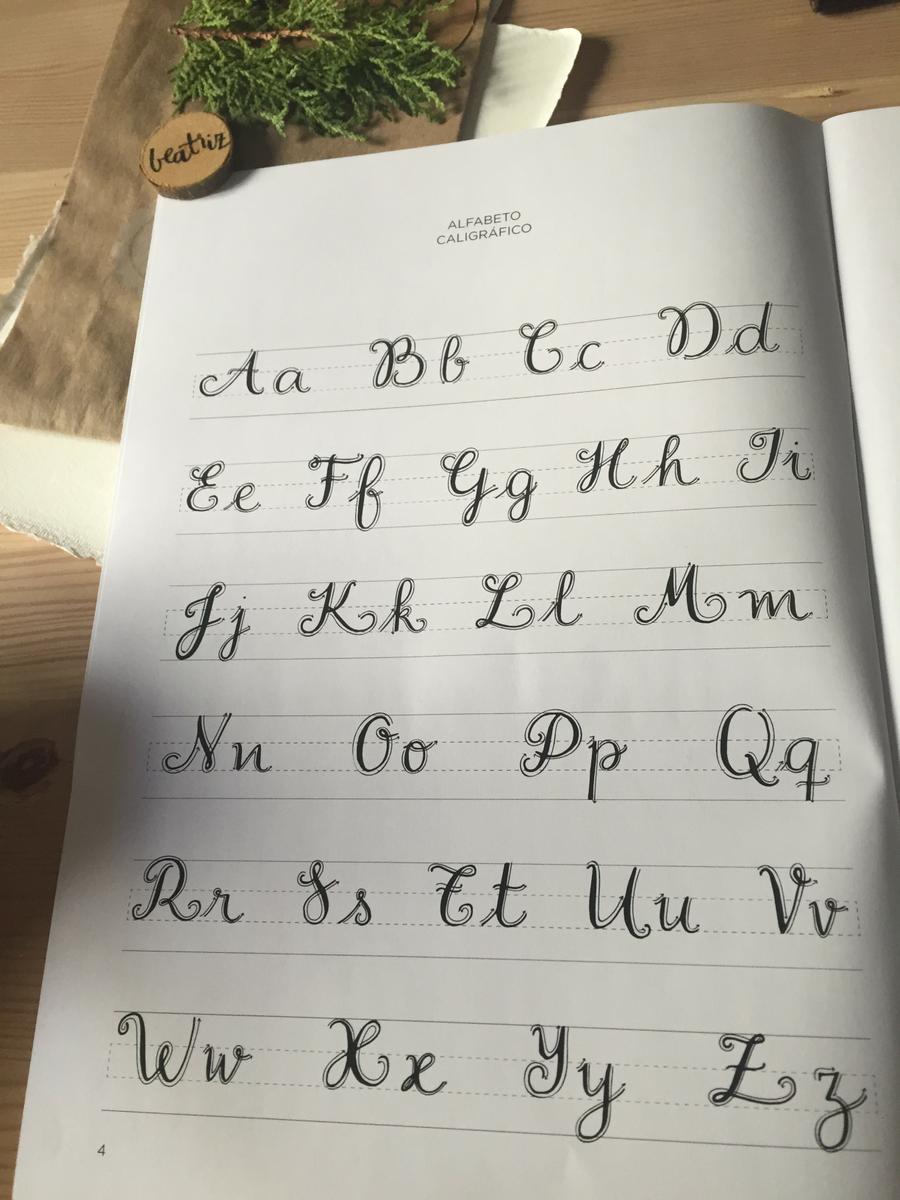 beatriz
ALFABETO
CALIGRÁFICO
Aa Bb Cc Dd
Ee Ff Gg Hh Ii
Jj Kk Ll Mm
Nn Oo Pp Qq
Rr Ss Tt Uu Vv
Ww Xx Yy Zz
4